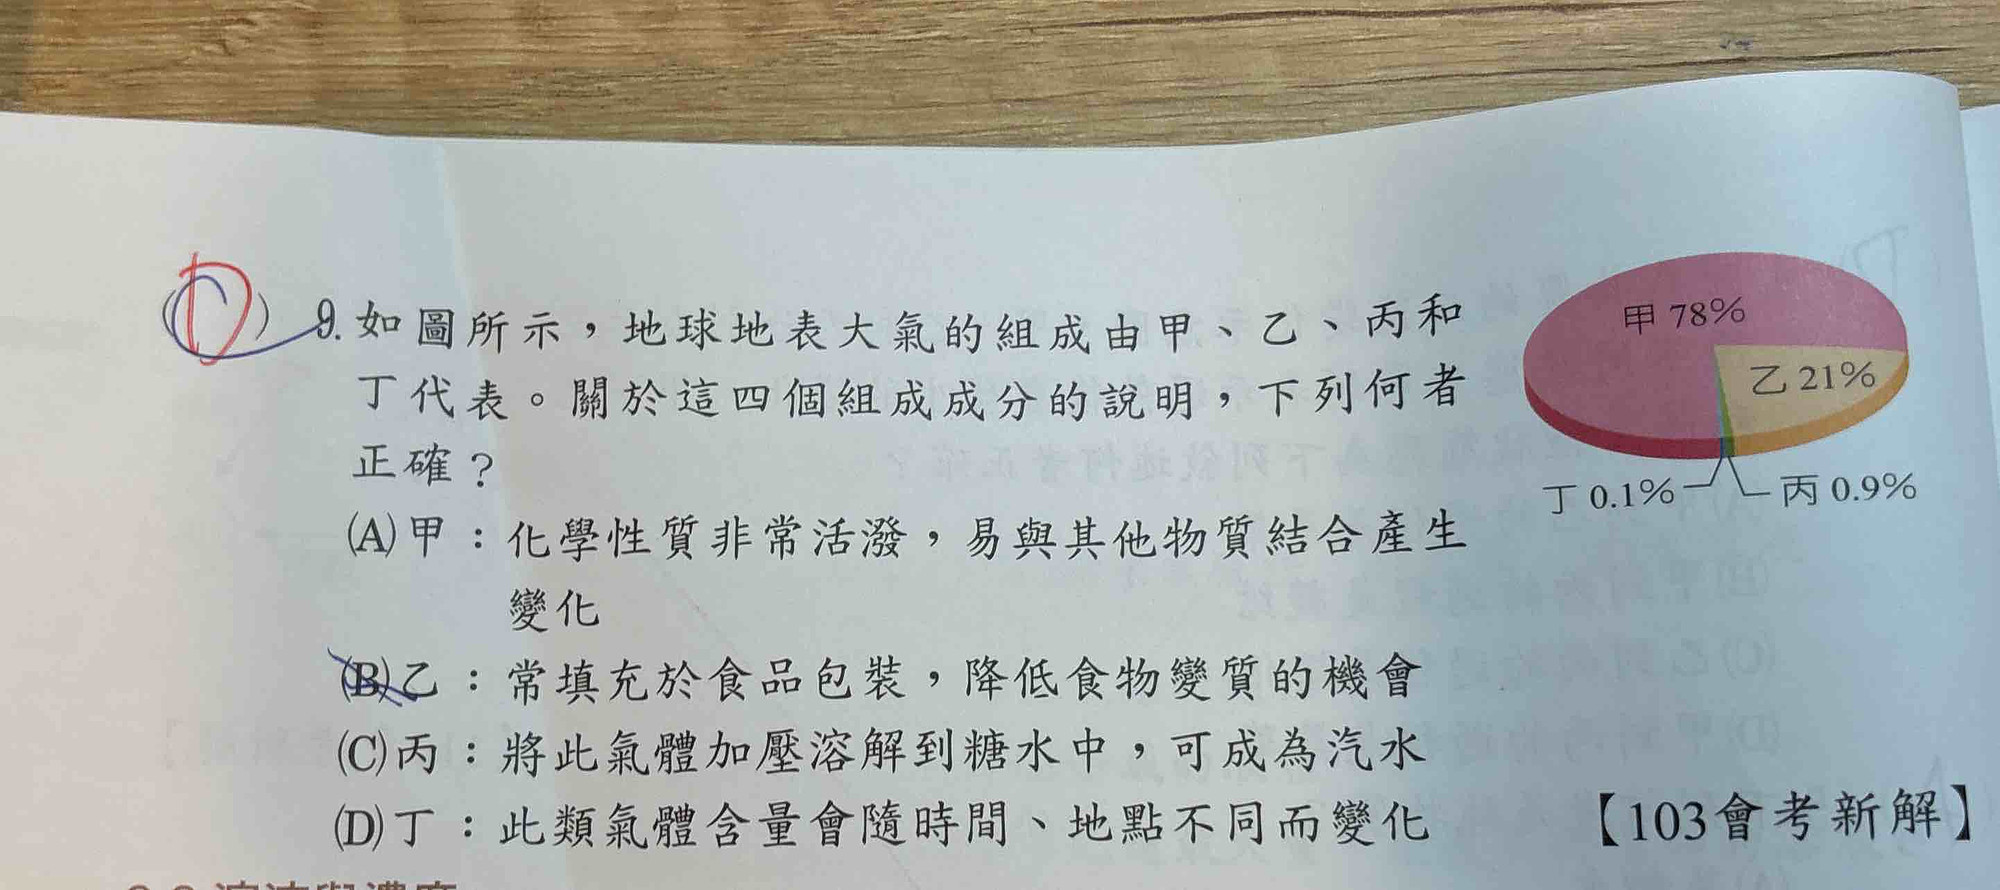 (D) 9. 如圖所示，地球地表大氣的組成由甲、乙、丙和
丁代表。關於這四個組成成分的說明，下列何者
正確？
(A) 甲：化學性質非常活潑，易與其他物質結合產生
變化
(B) 乙：常填充於食品包裝，降低食物變質的機會
(C) 丙：將此氣體加壓溶解到糖水中，可成為汽水
(D) 丁：此類氣體含量會隨時間、地點不同而變化
【103會考新解】
甲 78%
乙 21%
丁 0.1%
丙 0.9%